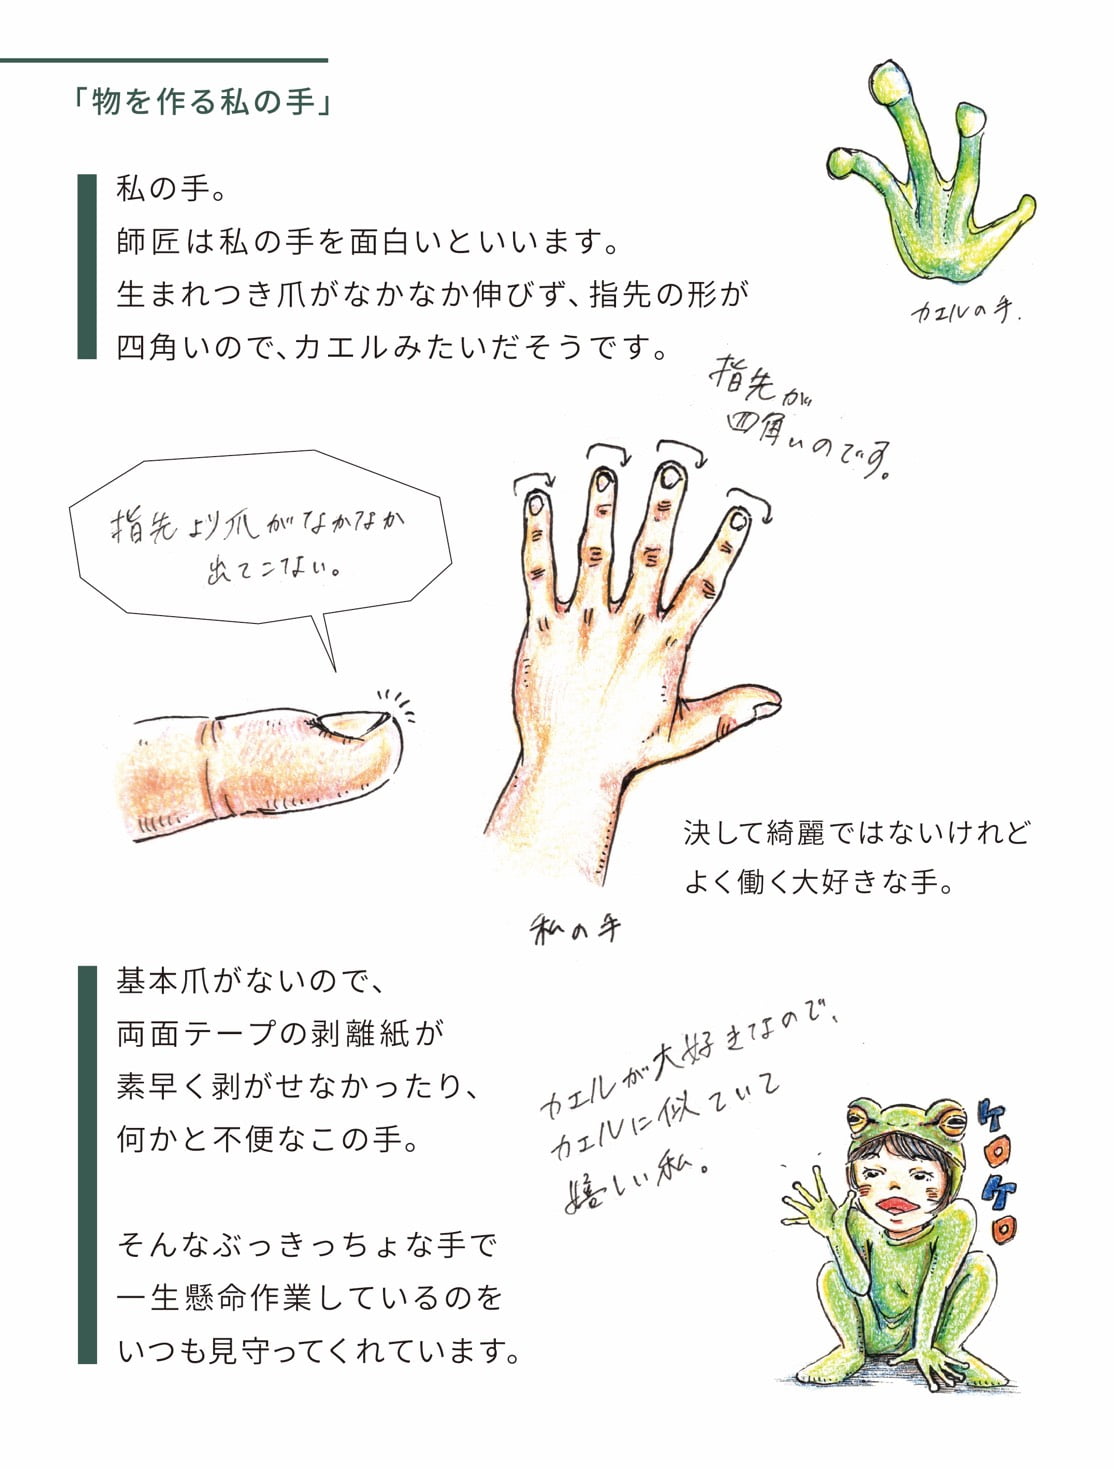 「物を作る私の手」
私の手。
師匠は私の手を面白いといいます。
生まれつき爪がなかなか伸びず、指先の形が
四角いので、カエルみたいだそうです。
カエルの手.
指先が
四角いのです。
指先より爪がなかなか
出てこない。
決して綺麗ではないけれど
よく働く大好きな手。
私の手
基本爪がないので、
両面テープの剥離紙が
素早く剥がせなかったり、
何かと不便なこの手。
カエルが大好きなので、
カエルに似ていて
嬉しい私。
ケロケロ
そんなぶっきっちょな手で
一生懸命作業しているのを
いつも見守ってくれています。